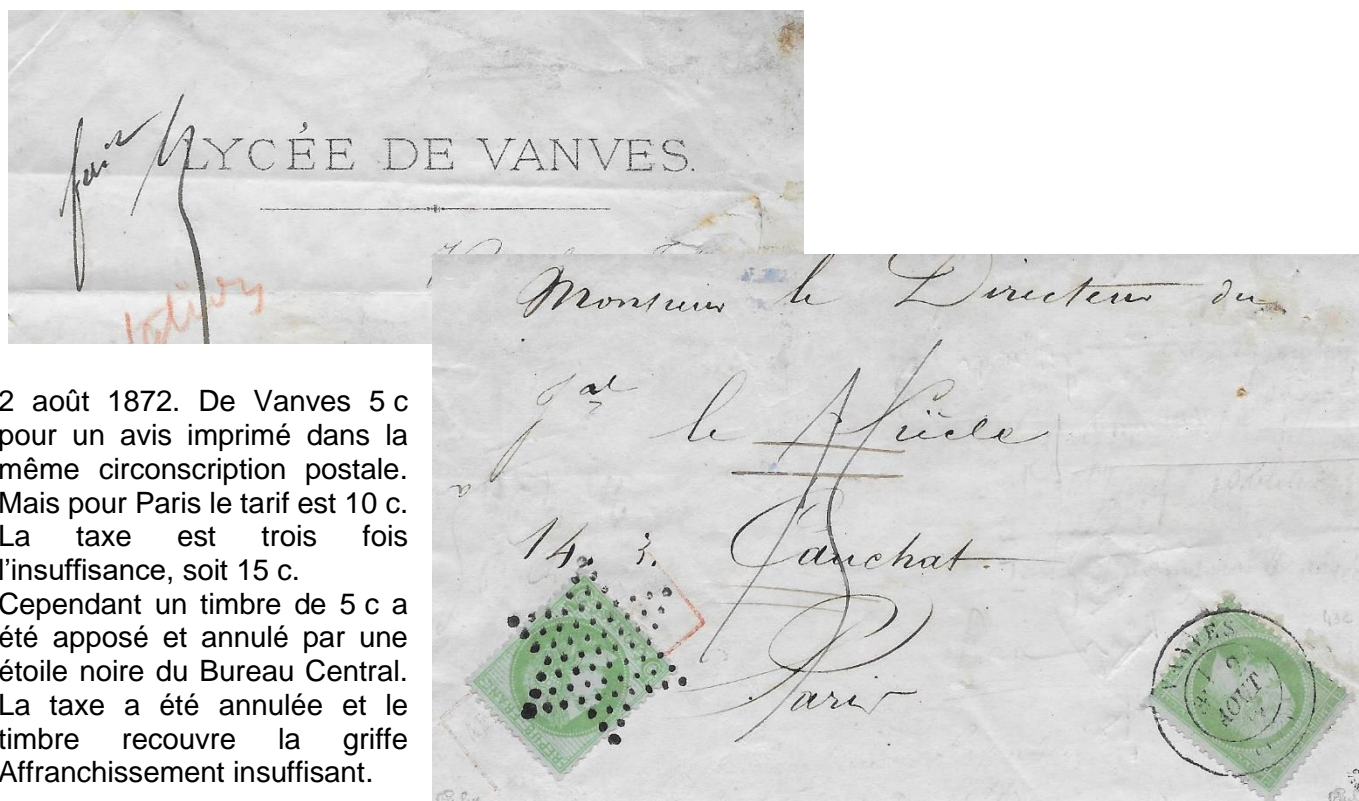 LYCÉE DE VANVES.
Monsieur le Directeur du
jal le Siècle
14.
Cauchat
Paris
VANVES
2
AOUT
2 août 1872. De Vanves 5 c
pour un avis imprimé dans la
même circonscription postale.
Mais pour Paris le tarif est 10 c.
La taxe est trois fois
l'insuffisance, soit 15 c.
Cependant un timbre de 5 c a
été apposé et annulé par une
étoile noire du Bureau Central.
La taxe a été annulée et le
timbre recouvre la griffe
Affranchissement insuffisant.